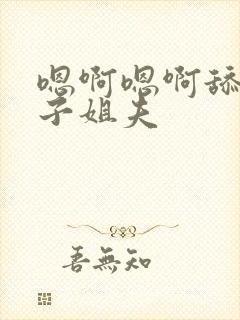 嗯啊嗯啊舔
子姐夫
善無知